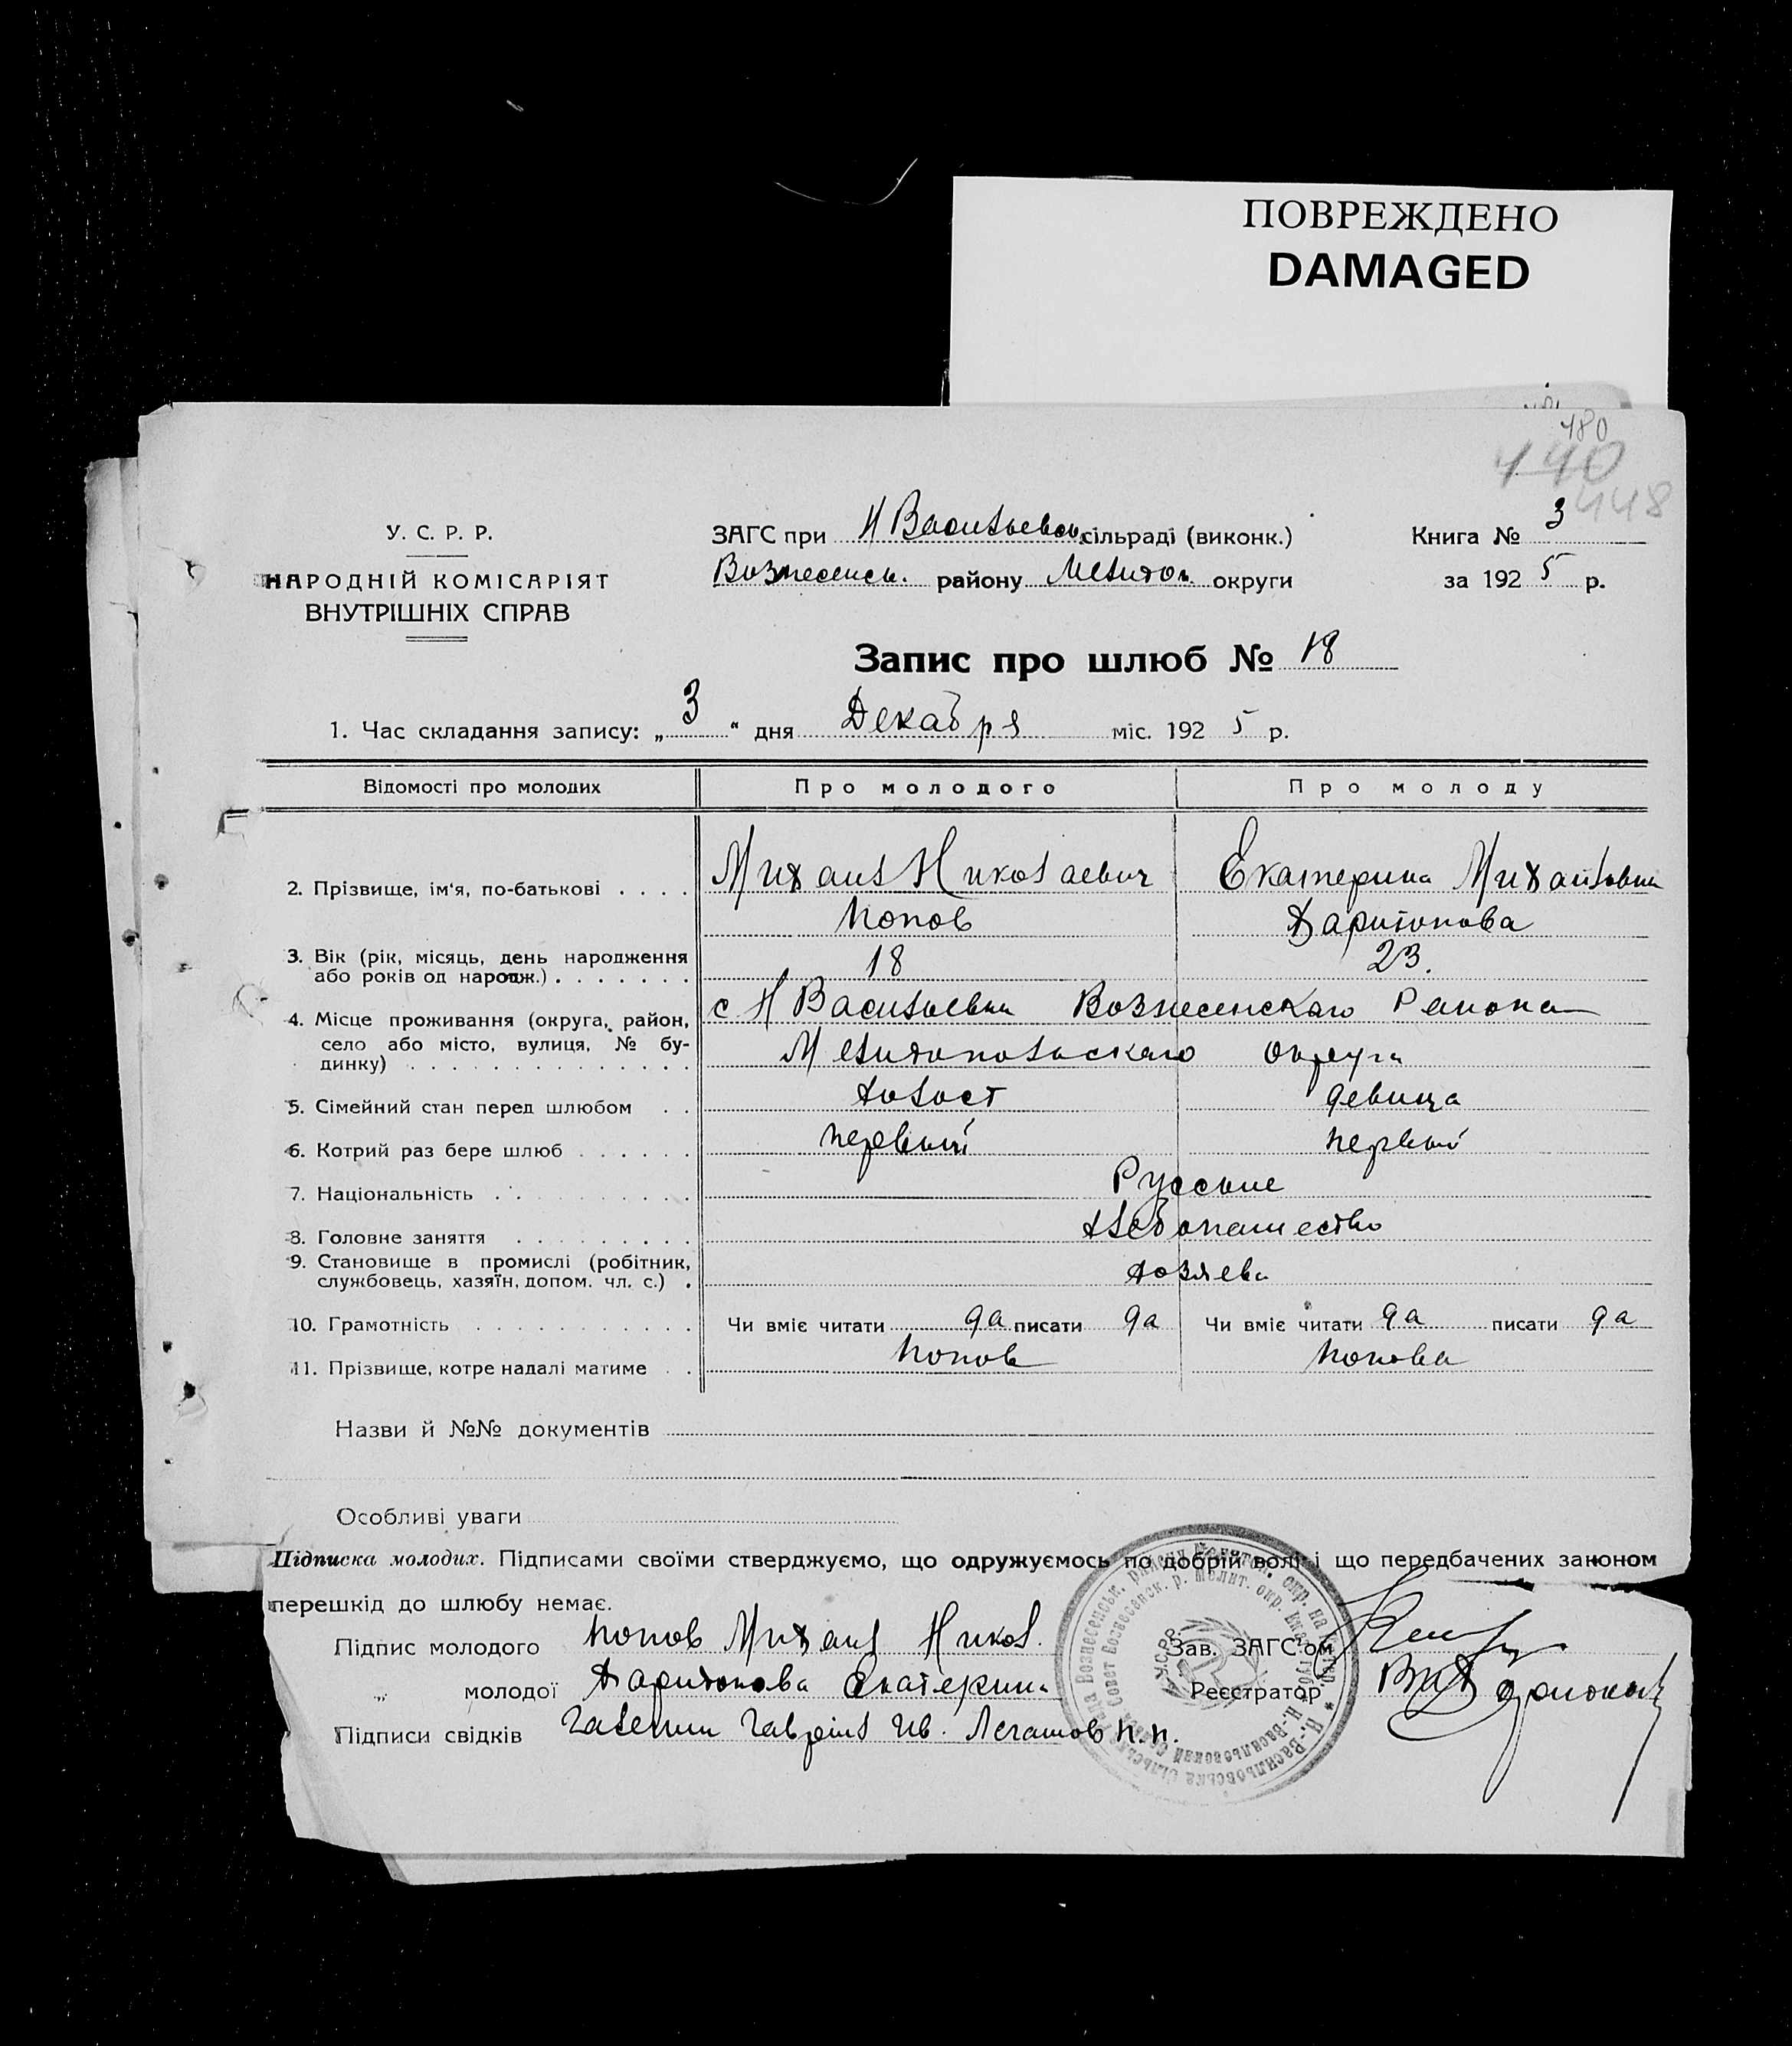 ПОВРЕЖДЕНО
DAMAGED
480
440
448
У. С. Р. Р.
НАРОДНІЙ КОМІСАРІЯТ
ВНУТРІШНІХ СПРАВ
ЗАГС при Н Васильевск. сільраді (виконк.)
Вознесенск. району Мелитоп. округи
Книга № 3
за 1925 р.
Запис про шлюб № 18
1. Час складання запису: „3“ дня Декабря міс. 1925 р.
Відомості про молодих Про молодого Про молоду
2. Прізвище, ім'я, по-батькові . . . . Михаил Николаевич Екатерина Михайловна
Попов Харитонова
3. Вік (рік, місяць, день народження
або років од народж.) . . . . . . . 18 23.
4. Місце проживання (округа, район, с Н Васильевки Вознесенскаго Района
село або місто, вулиця, № бу-
динку) . . . . . . . . . . . . . . Мелитопольскаго Округа
5. Сімейний стан перед шлюбом . . холост девица
6. Котрий раз бере шлюб . . . . . . первый первый
7. Національність . . . . . . . . . . Русские
8. Головне заняття . . . . . . . . . хлебопашество
9. Становище в промислі (робітник,
службовець, хазяїн, допом. чл. с.) . хозяева
10. Грамотність . . . . . . . . . . . Чи вміє читати да писати да Чи вміє читати да писати да
11. Прізвище, котре надалі матиме . . Попов Попова
Назви й №№ документів
Особливі уваги
Підписка молодих. Підписами своїми стверджуємо, що одружуємось по добрій волі і що передбачених законом
перешкід до шлюбу немає.
Підпис молодого Попов Михаил Никол.
„ молодої Харитонова Екатерина
Підписи свідків Галенин Гавриил Ив. Легашов П. П.
Зав. ЗАГС'ом
Реєстратор
У.С.Р.Р.